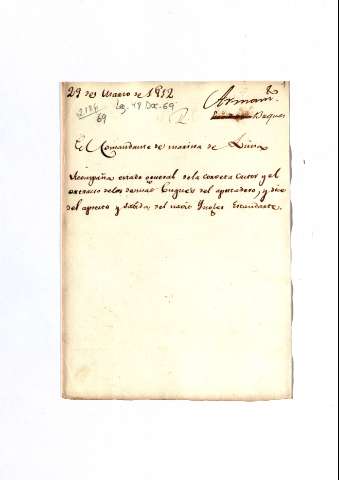 29 de Marzo de 1812
Armam.to
Buques
2126
69
Leg. 48 Doc. 69
El Comandante de marina de Lima
Acompaña estado general de la corveta Castor y el
extracto de los demas Buques del apostadero, y dice
del apresto y salida del navio Ingles Estandarte.